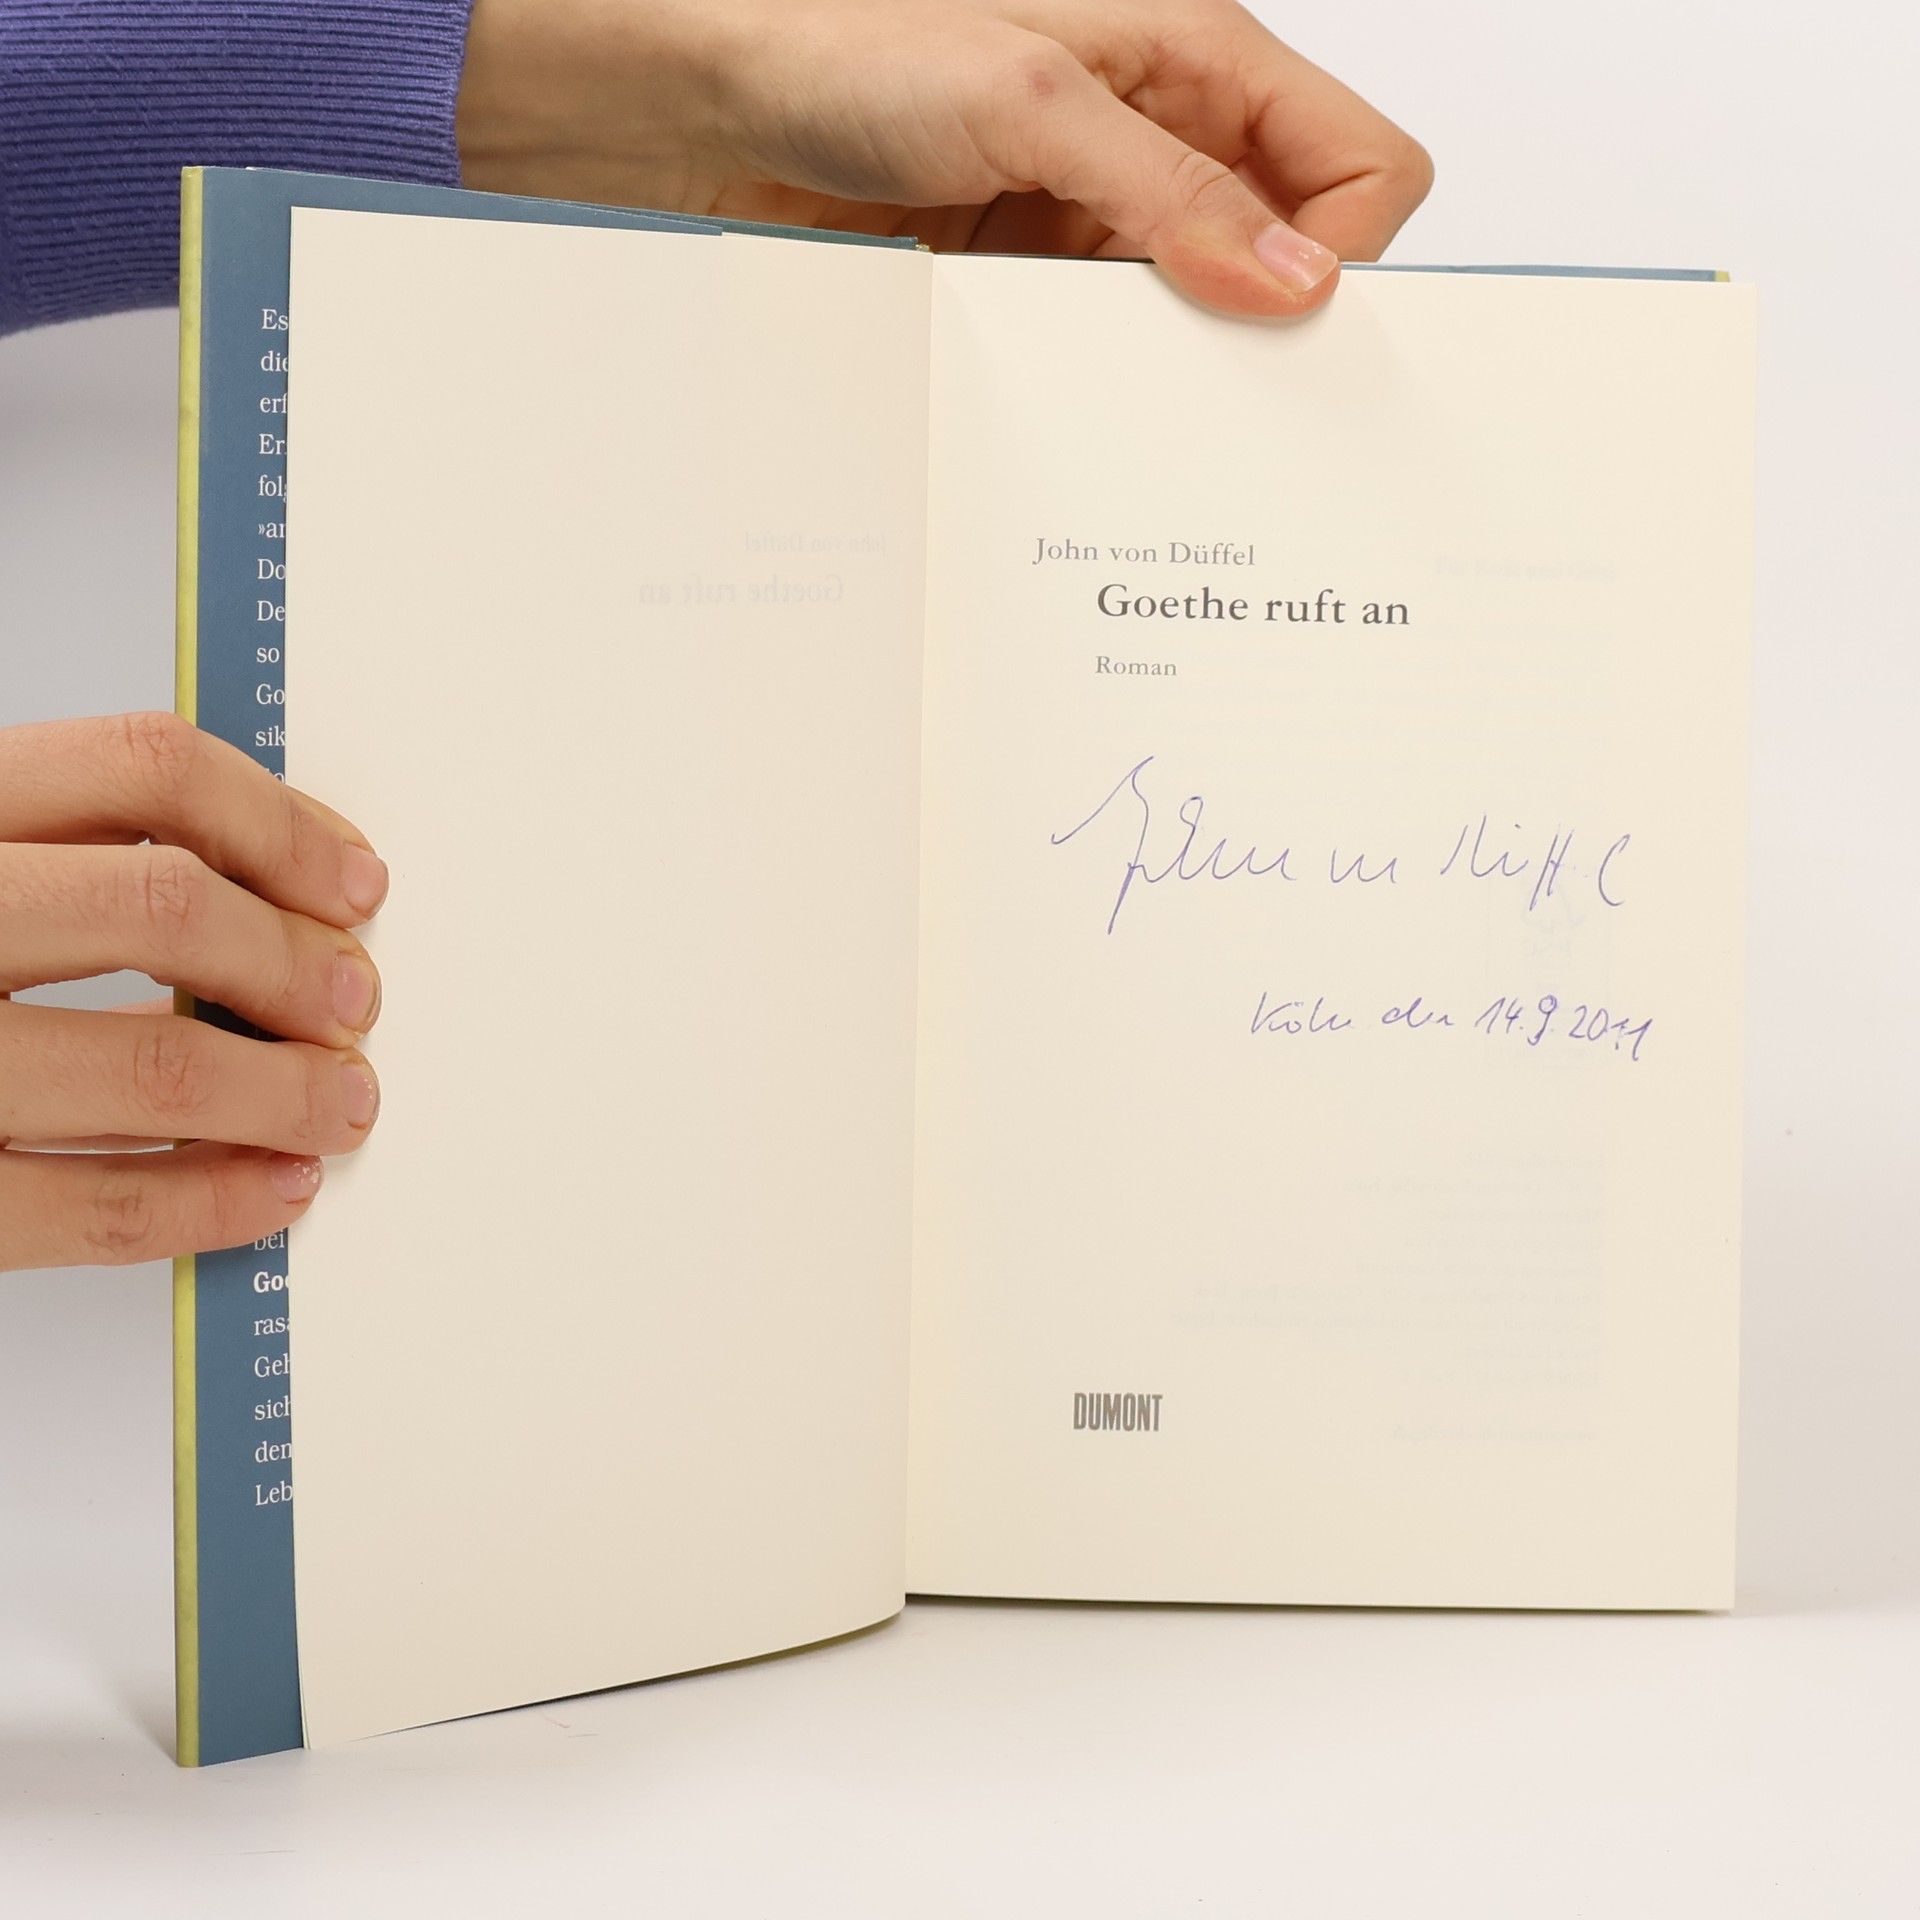 Es
die
erf
Er
fol
»an
Do
De
so
Go
sik
bei
Goe
ras
Geh
sich
den
Leb
John von Düffel
Goethe ruft an
Roman
John von Düffel
Köln den 14.9.2011
DUMONT